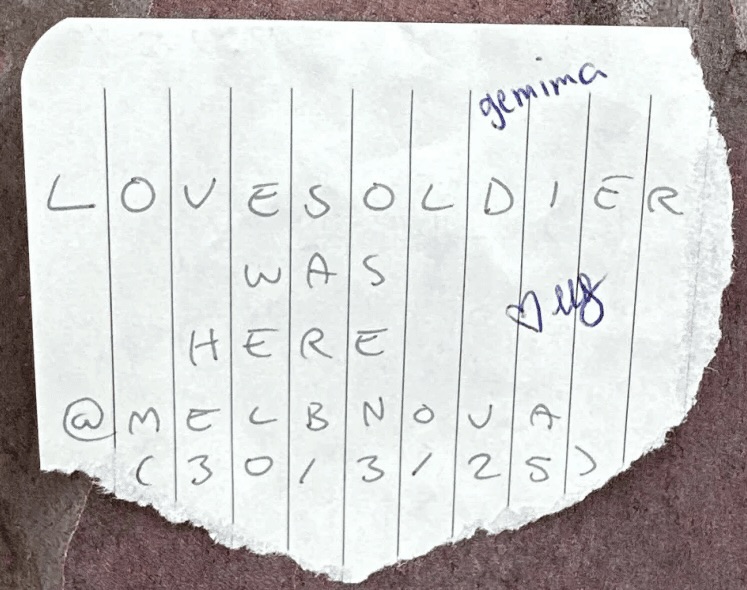 gemima
LOVESOLDIER
WAS
HERE
@MELBNOVA
(30/3/25)